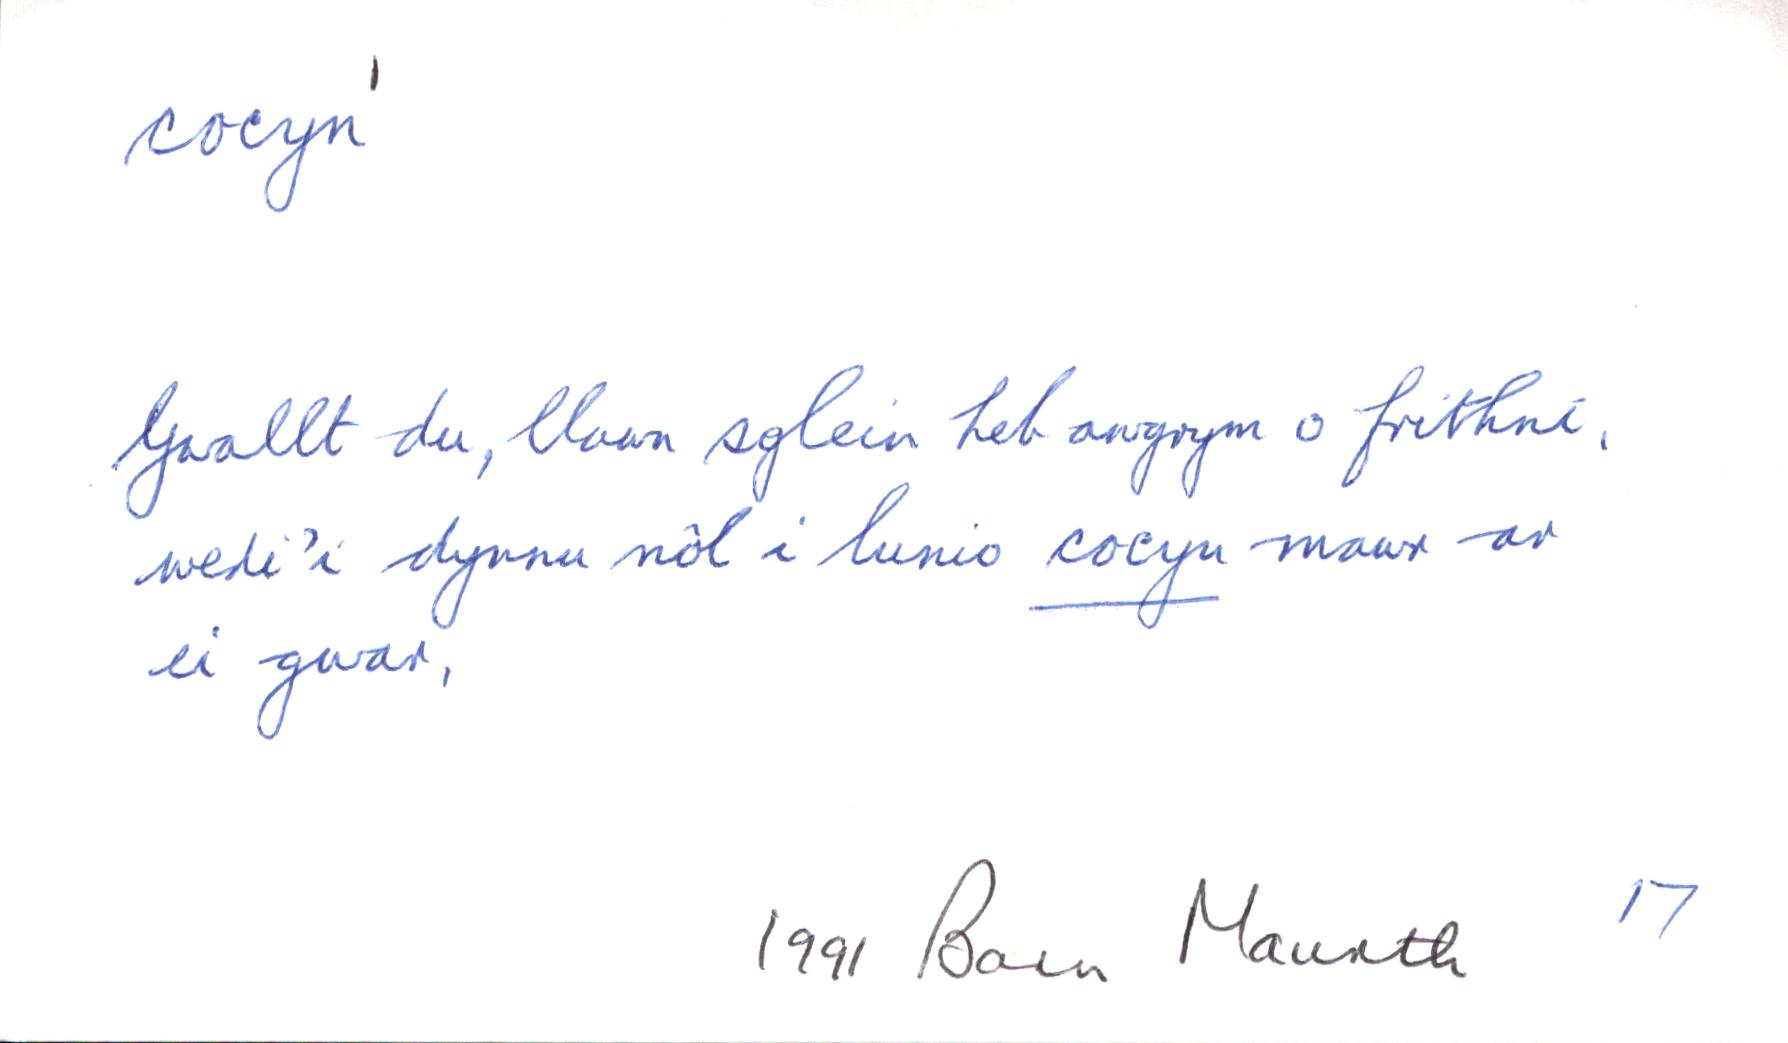 cocyn¹
Gwallt du, llawn sglein heb awgrym o frithni,
wedi'i dynnu nôl i lunio cocyn mawr ar
ei gwar,
17
1991 Bore Mawrth